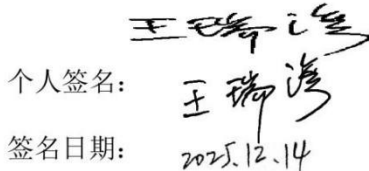 王瑞
个人签名: 王瑞
签名日期: 2025.12.14